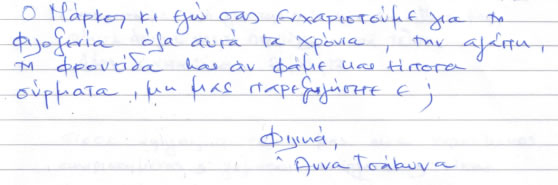 Ο Μάρκος κι εγώ σας ευχαριστούμε για τη
φιλοξενία όλα αυτά τα χρόνια, την αγάπη,
τη φροντίδα και αν φάμε και τίποτα
σύρματα, μη μας παρεξηγήσετε ε;
Φιλικά,
Άννα Τσάκωνα